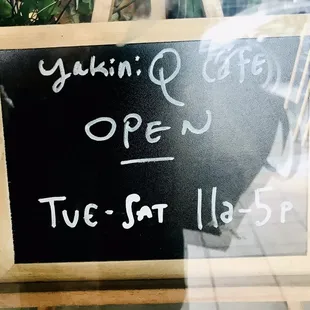 yakini Q CafE
OPEN
TUE-SAT 11a-5p